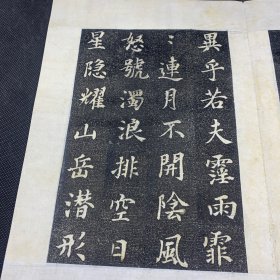 異乎若夫霪雨霏
〻連月不開陰風
怒號濁浪排空日
星隐耀山岳潜形